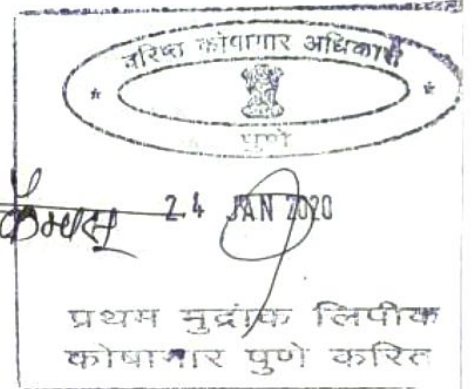 वरिष्ठ कोषागार अधिकारी
पुणे
24 JAN 2020
प्रथम मुद्रांक लिपीक
कोषागार पुणे करित